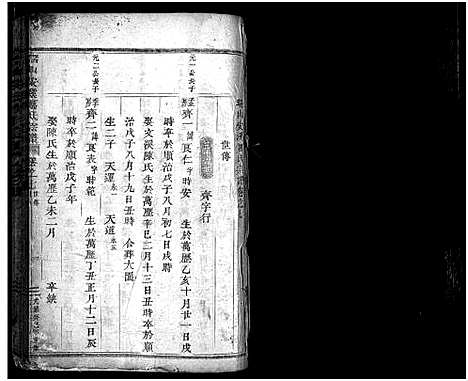 世傳
齊字行
元一公長子
齊一 良仁 字時安 生於萬歷乙亥十月廿一日戌
時卒於順治戊子八月初七日戌時
娶文溪陳氏生於萬歷辛巳二月十三日丑時卒於順
治戊子八月十九日丑時 合葬大園
生二子 天運 天道
元二公長子
齊二 良表 字時範 生於萬歷丁丑正月十二日辰
時卒於順治戊子年
娶陳氏生於萬歷乙未二月 卒缺